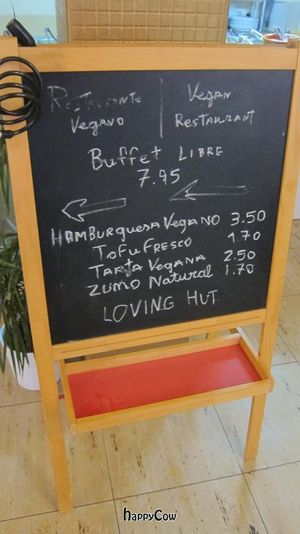 Restaurante | Vegan
Vegano | Restaurant
Buffet Libre
7.95
Hamburguesa Vegano 3.50
Tofu Fresco 1.70
Tarta Vegana 2.50
Zumo Natural 1.70
LOVING HUT
happyCow